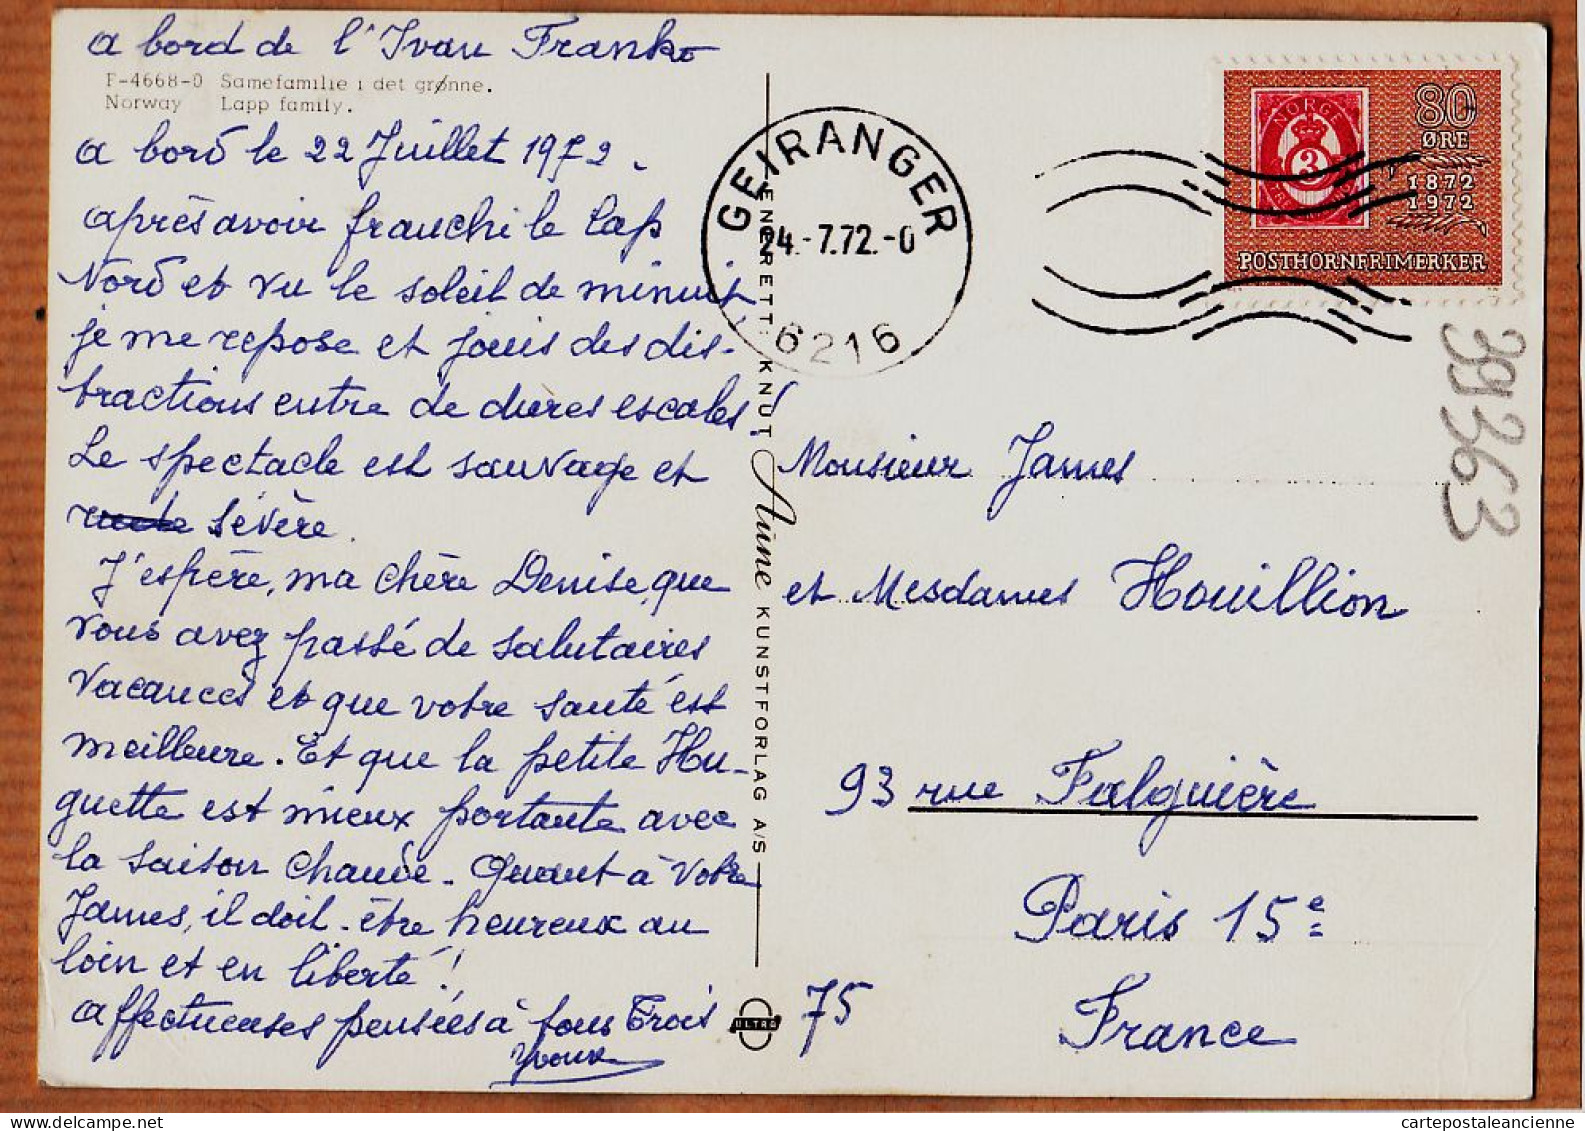 a bord de l'Ivan Franko
F-4668-0 Samefamilie i det grønne.
Norway Lapp family.
a bord le 22 Juillet 1972.
après avoir franchi le Cap
Nord et vu le soleil de minuit,
je me repose et jouis des dis-
tractions entre de dures escales!
Le spectacle est sauvage et
rude sévère.
J'espère, ma chère Denise, que
vous avez passé de salutaires
vacances et que votre santé est
meilleure. Et que la petite Hu-
guette est mieux portante avec
la saison chaude. Quant à votre
James, il doit être heureux au
loin et en liberté!
affectueuses pensées à tous Trois
Yvonne
ENERETT: KNUT Aune KUNSTFORLAG A/S
ULTRA
GEIRANGER
24.-7.72.-0
6216
NORGE
3
80
ØRE
1872
1972
POSTHORNFRIMERKER
39363
Monsieur James
et Mesdames Houillion
93 rue Falguière
Paris 15e
75 France
cartepostaleancienne